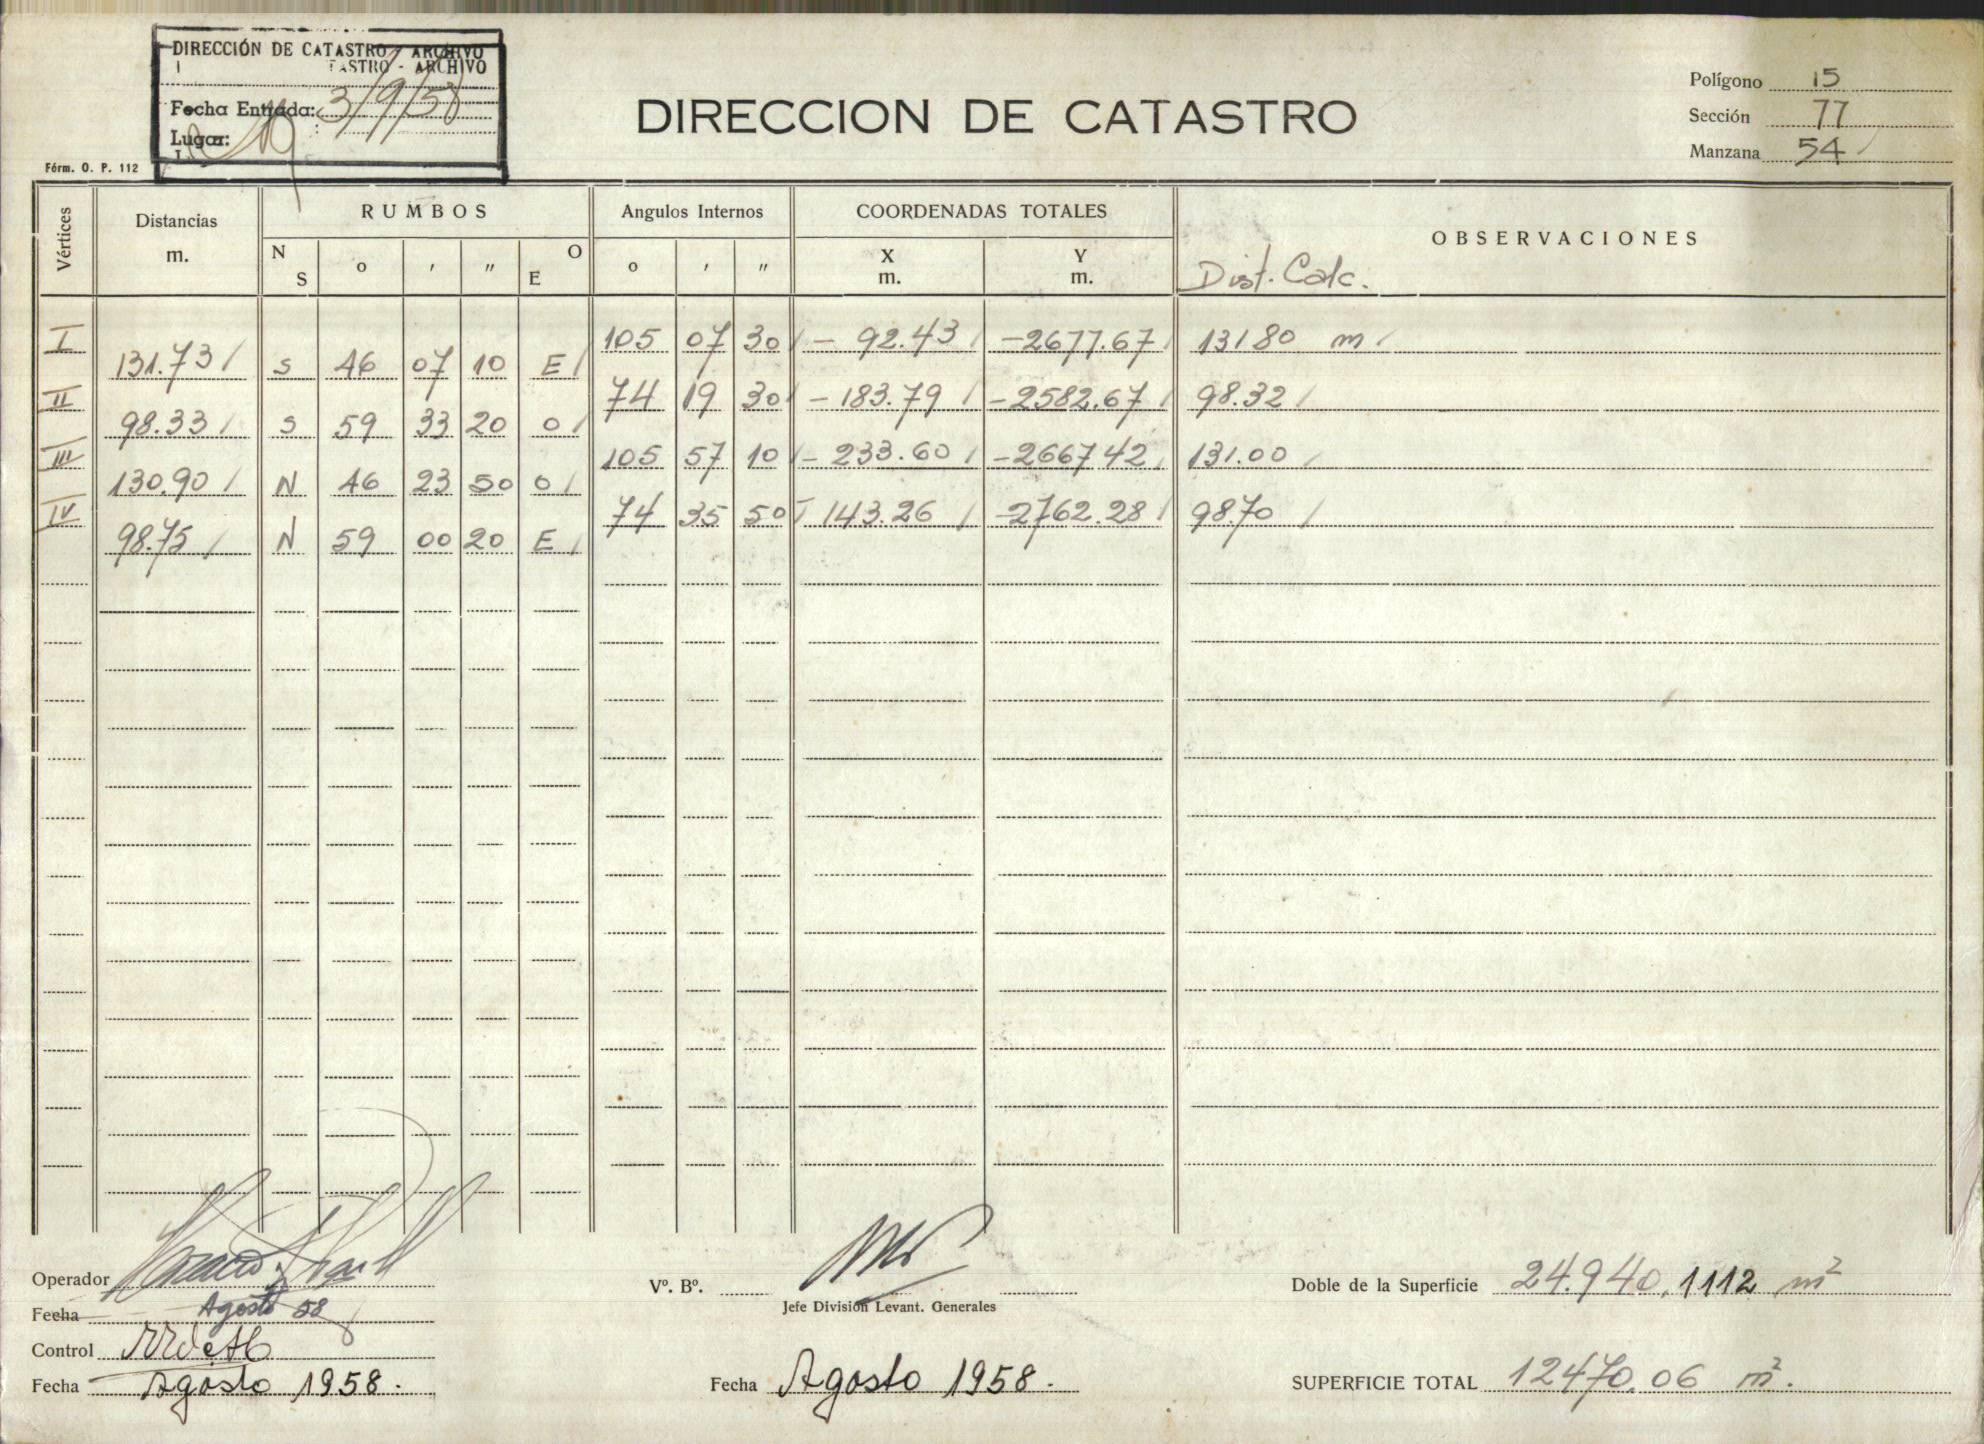 DIRECCIÓN DE CATASTRO - ARCHIVO
TASTRO - ARCHIVO
Fecha Entrada: 3/9/58
Lugar:
Férm. O. P. 112
DIRECCION DE CATASTRO
Polígono 15
Sección 77
Manzana 54
Vértices Distancias m. RUMBOS Angulos Internos COORDENADAS TOTALES OBSERVACIONES
N S o ' " O E o ' " X m. Y m. Dist. Calc.
I 105 07 30 - 92.43 -2677.67 13180 m
131.73 S 46 07 10 E
II 74 19 30 - 183.79 -2582.67 98.32
98.33 S 59 33 20 O
III 105 57 10 - 233.60 -266742 131.00
130.90 N 46 23 50 O
IV 74 35 50 - 143.26 -2762.28 98.70
98.75 N 59 00 20 E
Operador
Fecha Agosto 58
Control
Fecha Agosto 1958.
Vº. Bº.
Jefe División Levant. Generales
Fecha Agosto 1958.
Doble de la Superficie 24.940,1112 m²
SUPERFICIE TOTAL 12470.06 m².